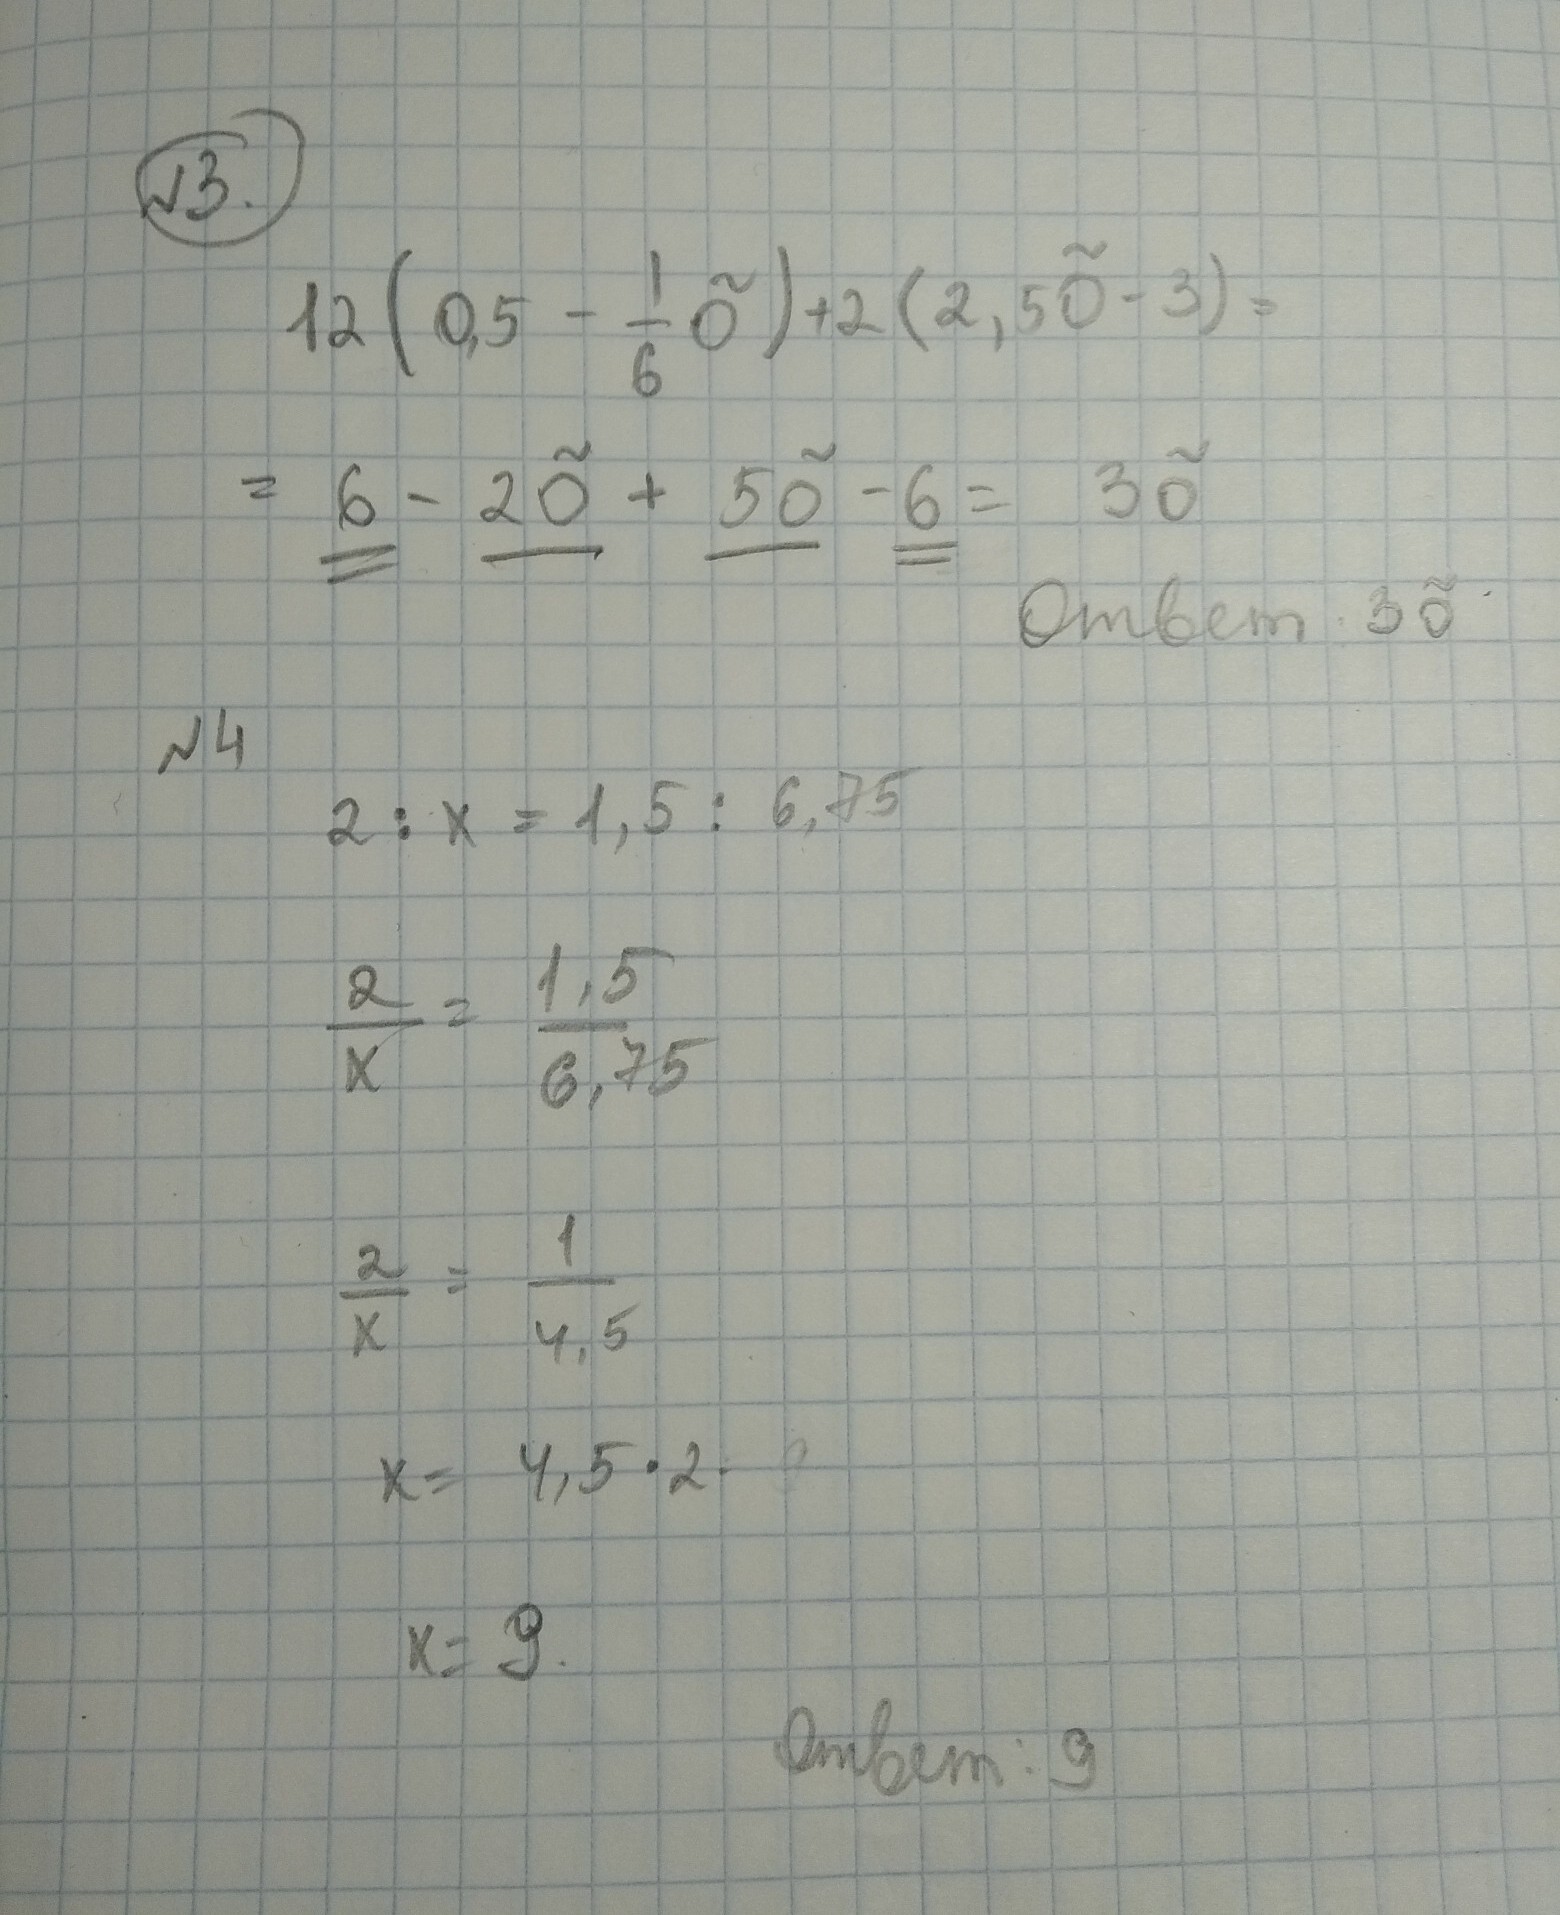 №3.
12(0,5 - 1/6 õ) + 2(2,5õ - 3) =
= 6 - 2õ + 5õ - 6 = 3õ
Ответ: 3õ
№4
2 : x = 1,5 : 6,75
2/x = 1,5/6,75
2/x = 1/4,5
x = 4,5 · 2
x = 9.
Ответ: 9